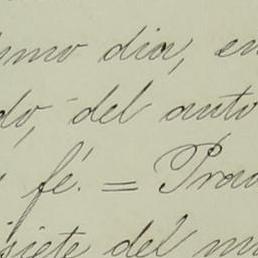 smo dia, en
do, del auto
fé. = Prov
siete del m